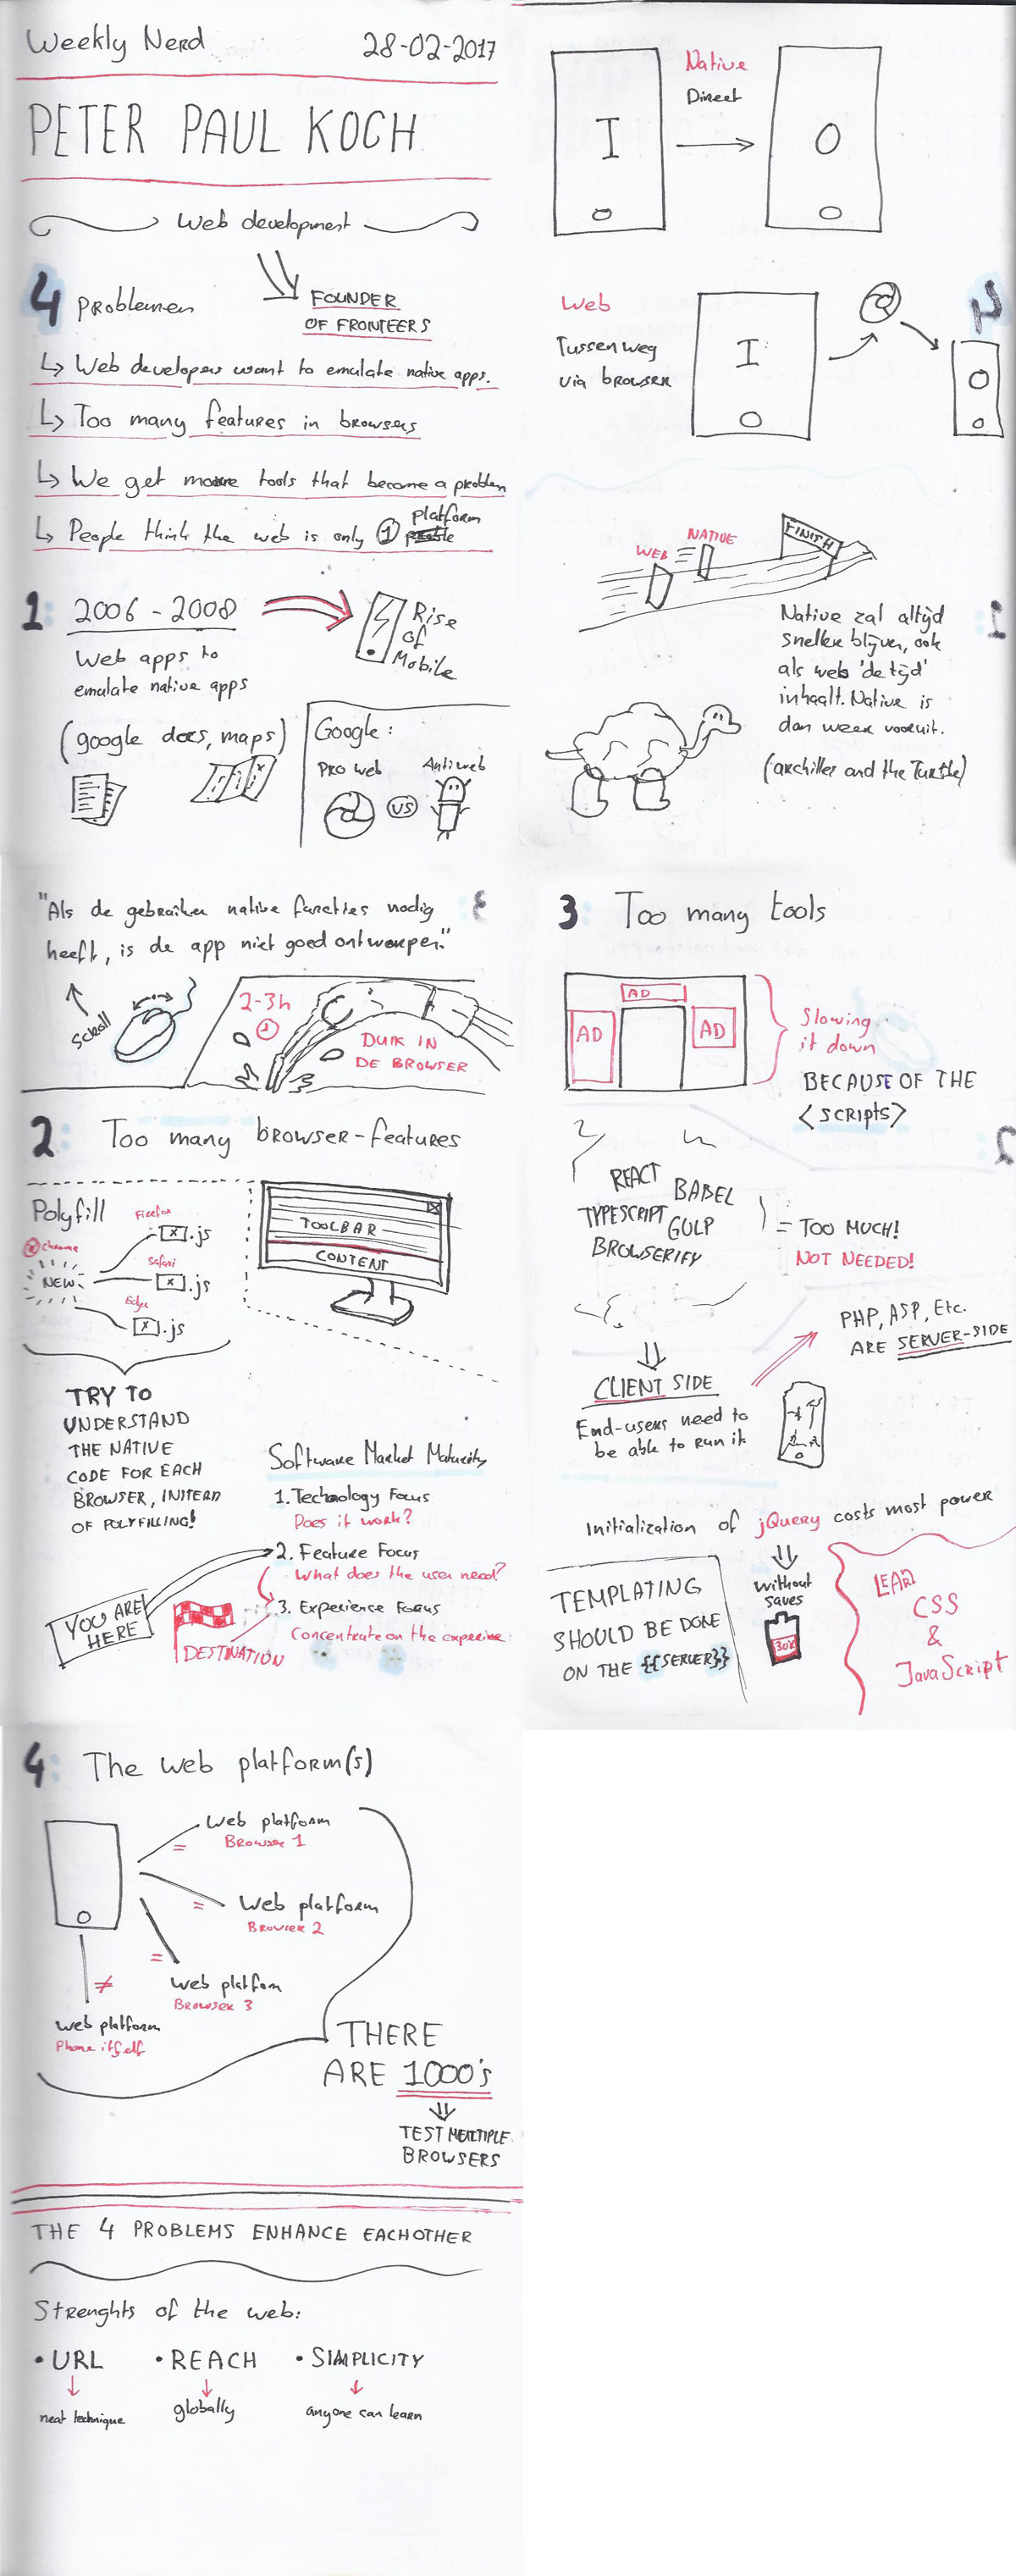 Weekly Nerd 28-02-2017
PETER PAUL KOCH
Web development
FOUNDER
OF FRONTEERS
4 problemen
↳ Web developers want to emulate native apps.
↳ Too many features in browsers
↳ We get more tools that become a problem
↳ People think the web is only 1 platform
1: 2006 - 2008
Web apps to
emulate native apps
(google docs, maps)
Rise
of
Mobile
Google:
pro web
VS
Antiweb
Native
Direct
I
O
Web
Tussenweg
via browser
I
O
WEB
NATIVE
FINISH
Native zal altijd
sneller blijven, ook
als web 'de tijd'
inhaalt. Native is
dan weer vooruit.
(archilles and the Turtle)
"Als de gebruiker native functies nodig
heeft, is de app niet goed ontworpen."
Scroll
2-3h
DUIK IN
DE BROWSER
2: Too many browser-features
Polyfill
Chrome
NEW
Firefox
[x].js
Safari
[x].js
Edge
[x].js
TOOLBAR
CONTENT
TRY TO
UNDERSTAND
THE NATIVE
CODE FOR EACH
BROWSER, INSTEAD
OF POLYFILLING!
Software Market Maturity
1. Technology Focus
Does it work?
2. Feature Focus
What does the user need?
3. Experience Focus
Concentrate on the experience
YOU ARE
HERE
DESTINATION
3: Too many tools
AD
AD
AD
Slowing
it down
BECAUSE OF THE
<SCRIPTS>
REACT
BABEL
TYPESCRIPT
GULP
BROWSERIFY
= TOO MUCH!
NOT NEEDED!
CLIENT SIDE
End-users need to
be able to run it
PHP, ASP, Etc.
ARE SERVER-SIDE
Initialization of jQuery costs most power
TEMPLATING
SHOULD BE DONE
ON THE {{SERVER}}
without
saves
30%
LEARN
CSS
&
JavaScript
4: The web platform(s)
= Web platform
Browser 1
= Web platform
Browser 2
= Web platform
Browser 3
≠
Web platform
Phone itself
THERE
ARE 1000's
TEST MULTIPLE
BROWSERS
THE 4 PROBLEMS ENHANCE EACHOTHER
Strenghts of the web:
• URL
neat technique
• REACH
globally
• SIMPLICITY
anyone can learn